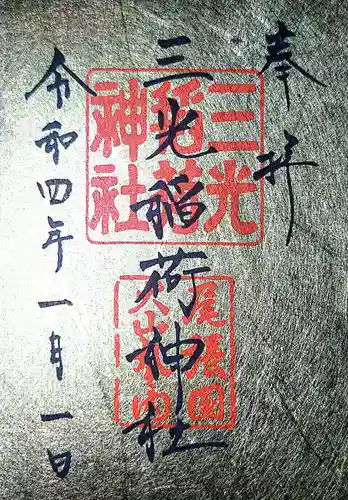 奉拝
三光稲荷神社
令和四年一月一日
三光
稲荷
神社
尾張国
犬山城内